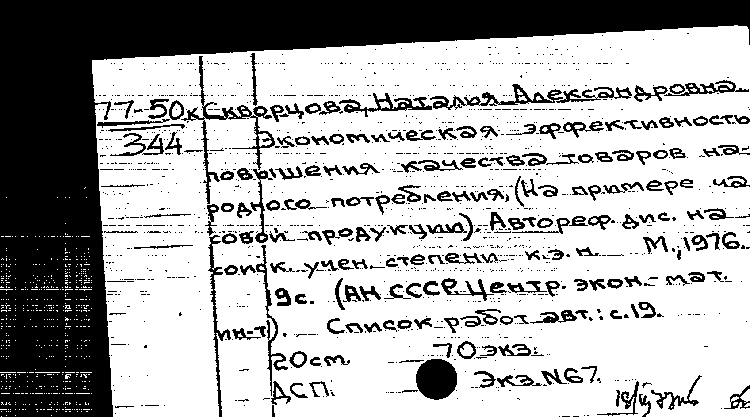 77-50к Скворцова, Наталья Александровна.
344 Экономическая эффективность
повышения качества товаров на-
родного потребления, (На примере ча
совой продукции). Автореф. дис. на
соиск. учен. степени к.э.н. М., 1976.
19с. (АН СССР. Центр. экон.-мат.
ин-т). Список работ авт.: с.19.
20см. 70 экз.
ДСП. Экз. N67.